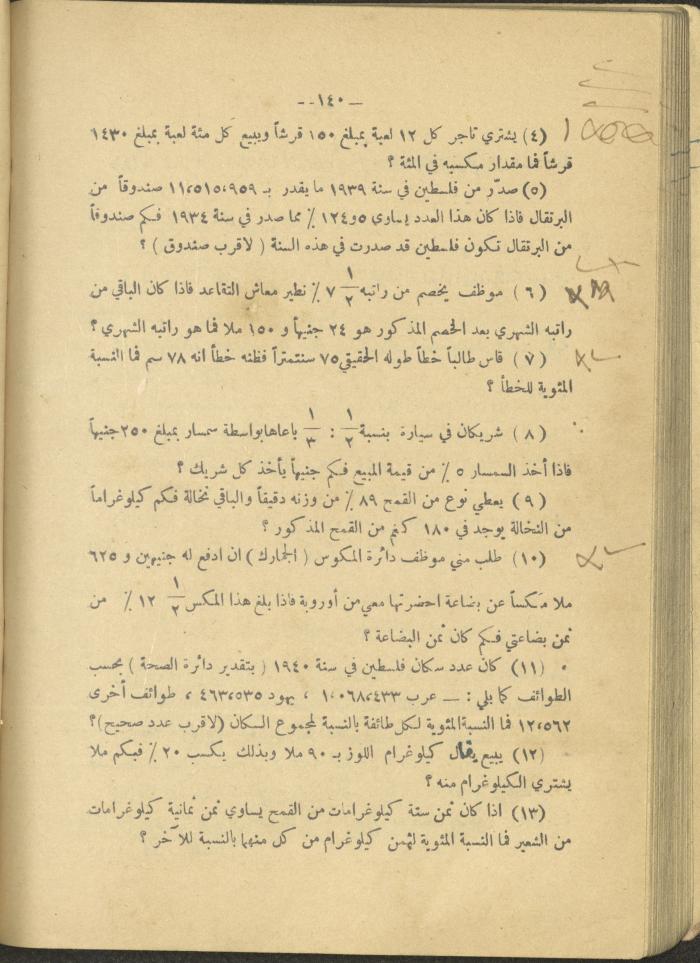 — ١٤٠ —
(٤) يشتري تاجر كل ١٢ لعبة بمبلغ ١٥٠ قرشاً ويبيع كل مئة لعبة بمبلغ ١٤٣٠
قرشاً فما مقدار مكسبه في المئة ؟
(٥) صدّر من فلسطين في سنة ١٩٣٩ ما يقدر بـ ١١،٥١٥،٩٥٩ صندوقاً من
البرتقال فاذا كان هذا العدد يساوي ١٢٤٫٥ ٪ مما صدر في سنة ١٩٣٤ فكم صندوقاً
من البرتقال تكون فلسطين قد صدرت في هذه السنة ( لاقرب صندوق ) ؟
( ٦ ) موظف يخصم من راتبه ١/٢ ٧ ٪ نظير معاش التقاعد فاذا كان الباقي من
راتبه الشهري بعد الخصم المذكور هو ٢٤ جنيهاً و ١٥٠ ملا فما هو راتبه الشهري ؟
( ٧ ) قاس طالباً خطاً طوله الحقيقي ٧٥ سنتمتراً فظنه خطأ انه ٧٨ سم فما النسبة
المئوية للخطأ ؟
( ٨ ) شريكان في سيارة بنسبة ١/٢ : ١/٣ باعاها بواسطة سمسار بمبلغ ٢٥٠ جنيهاً
فاذا أخذ السمسار ٥ ٪ من قيمة المبيع فكم جنيهاً يأخذ كل شريك ؟
( ٩ ) يعطي نوع من القمح ٨٩ ٪ من وزنه دقيقاً والباقي نخالة فكم كيلوغراماً
من النخالة يوجد في ١٨٠ كغم من القمح المذكور ؟
(١٠) طلب مني موظف دائرة المكوس ( الجمارك ) ان ادفع له جنيهين و ٦٢٥
ملا مكساً عن بضاعة احضرتها معي من أوروبة فاذا بلغ هذا المكس ١/٢ ١٢ ٪ من
ثمن بضاعتي فكم كان ثمن البضاعة ؟
(١١) كان عدد سكان فلسطين في سنة ١٩٤٠ ( بتقدير دائرة الصحة ) بحسب
الطوائف كما يلي : — عرب ١،٠٦٨،٤٣٣ ، يهود ٤٦٣،٥٣٥ ، طوائف أخرى
١٢،٥٦٢ فما النسبة المئوية لكل طائفة بالنسبة لمجموع السكان (لاقرب عدد صحيح)؟
(١٢) يبيع بقال كيلوغرام اللوز بـ ٩٠ ملا وبذلك يكسب ٢٠ ٪ فبكم ملا
يشتري الكيلوغرام منه ؟
(١٣) اذا كان ثمن ستة كيلوغرامات من القمح يساوي ثمن ثمانية كيلوغرامات
من الشعير فما النسبة المئوية لثمن كيلوغرام من كل منهما بالنسبة للآخر ؟